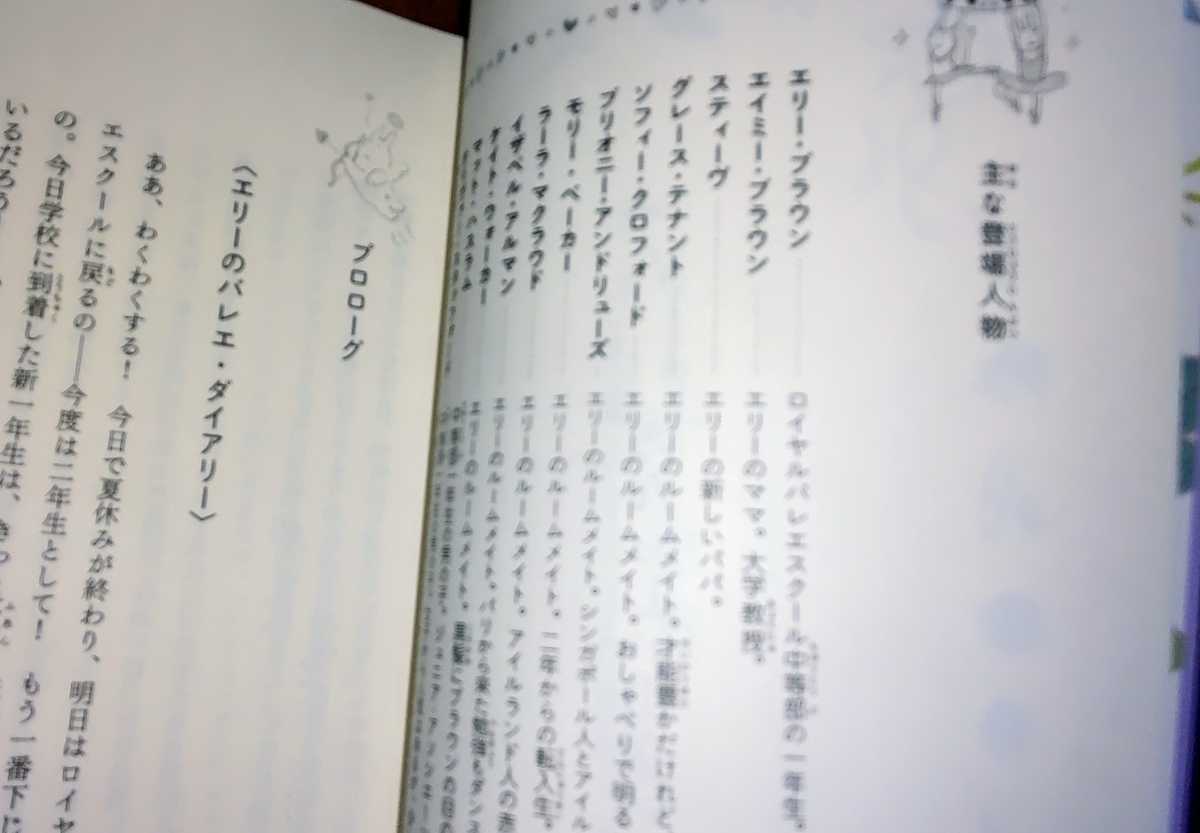 主な登場人物
エリー・ブラウン……ロイヤルバレエスクール中等部の一年生。
エイミー・ブラウン……エリーのママ。大学教授。
スティーヴ……エリーの新しいパパ。
グレース・テナント……エリーのルームメイト。才能豊かだけれど、
ソフィー・クロフォード……エリーのルームメイト。おしゃべりで明る
ブリオニー・アンドリューズ……エリーのルームメイト。シンガポール人とアイル
モリー・ベーカー……エリーのルームメイト。二年からの転入生。
ラーラ・マクラウド……エリーのルームメイト。アイルランド人の赤
イザベル・アルマン……エリーのルームメイト。パリから来た勉強もダンス
ケイト・ウォーカー……エリーのルームメイト。黒髪にブラウンの目の
マット・ハスラム
プロローグ
〈エリーのバレエ・ダイアリー〉
ああ、わくわくする! 今日で夏休みが終わり、明日はロイヤ
エスクールに戻るの——今度は二年生として! もう一番下じ
の。今日学校に到着した新一年生は、きっと
いるだろうな